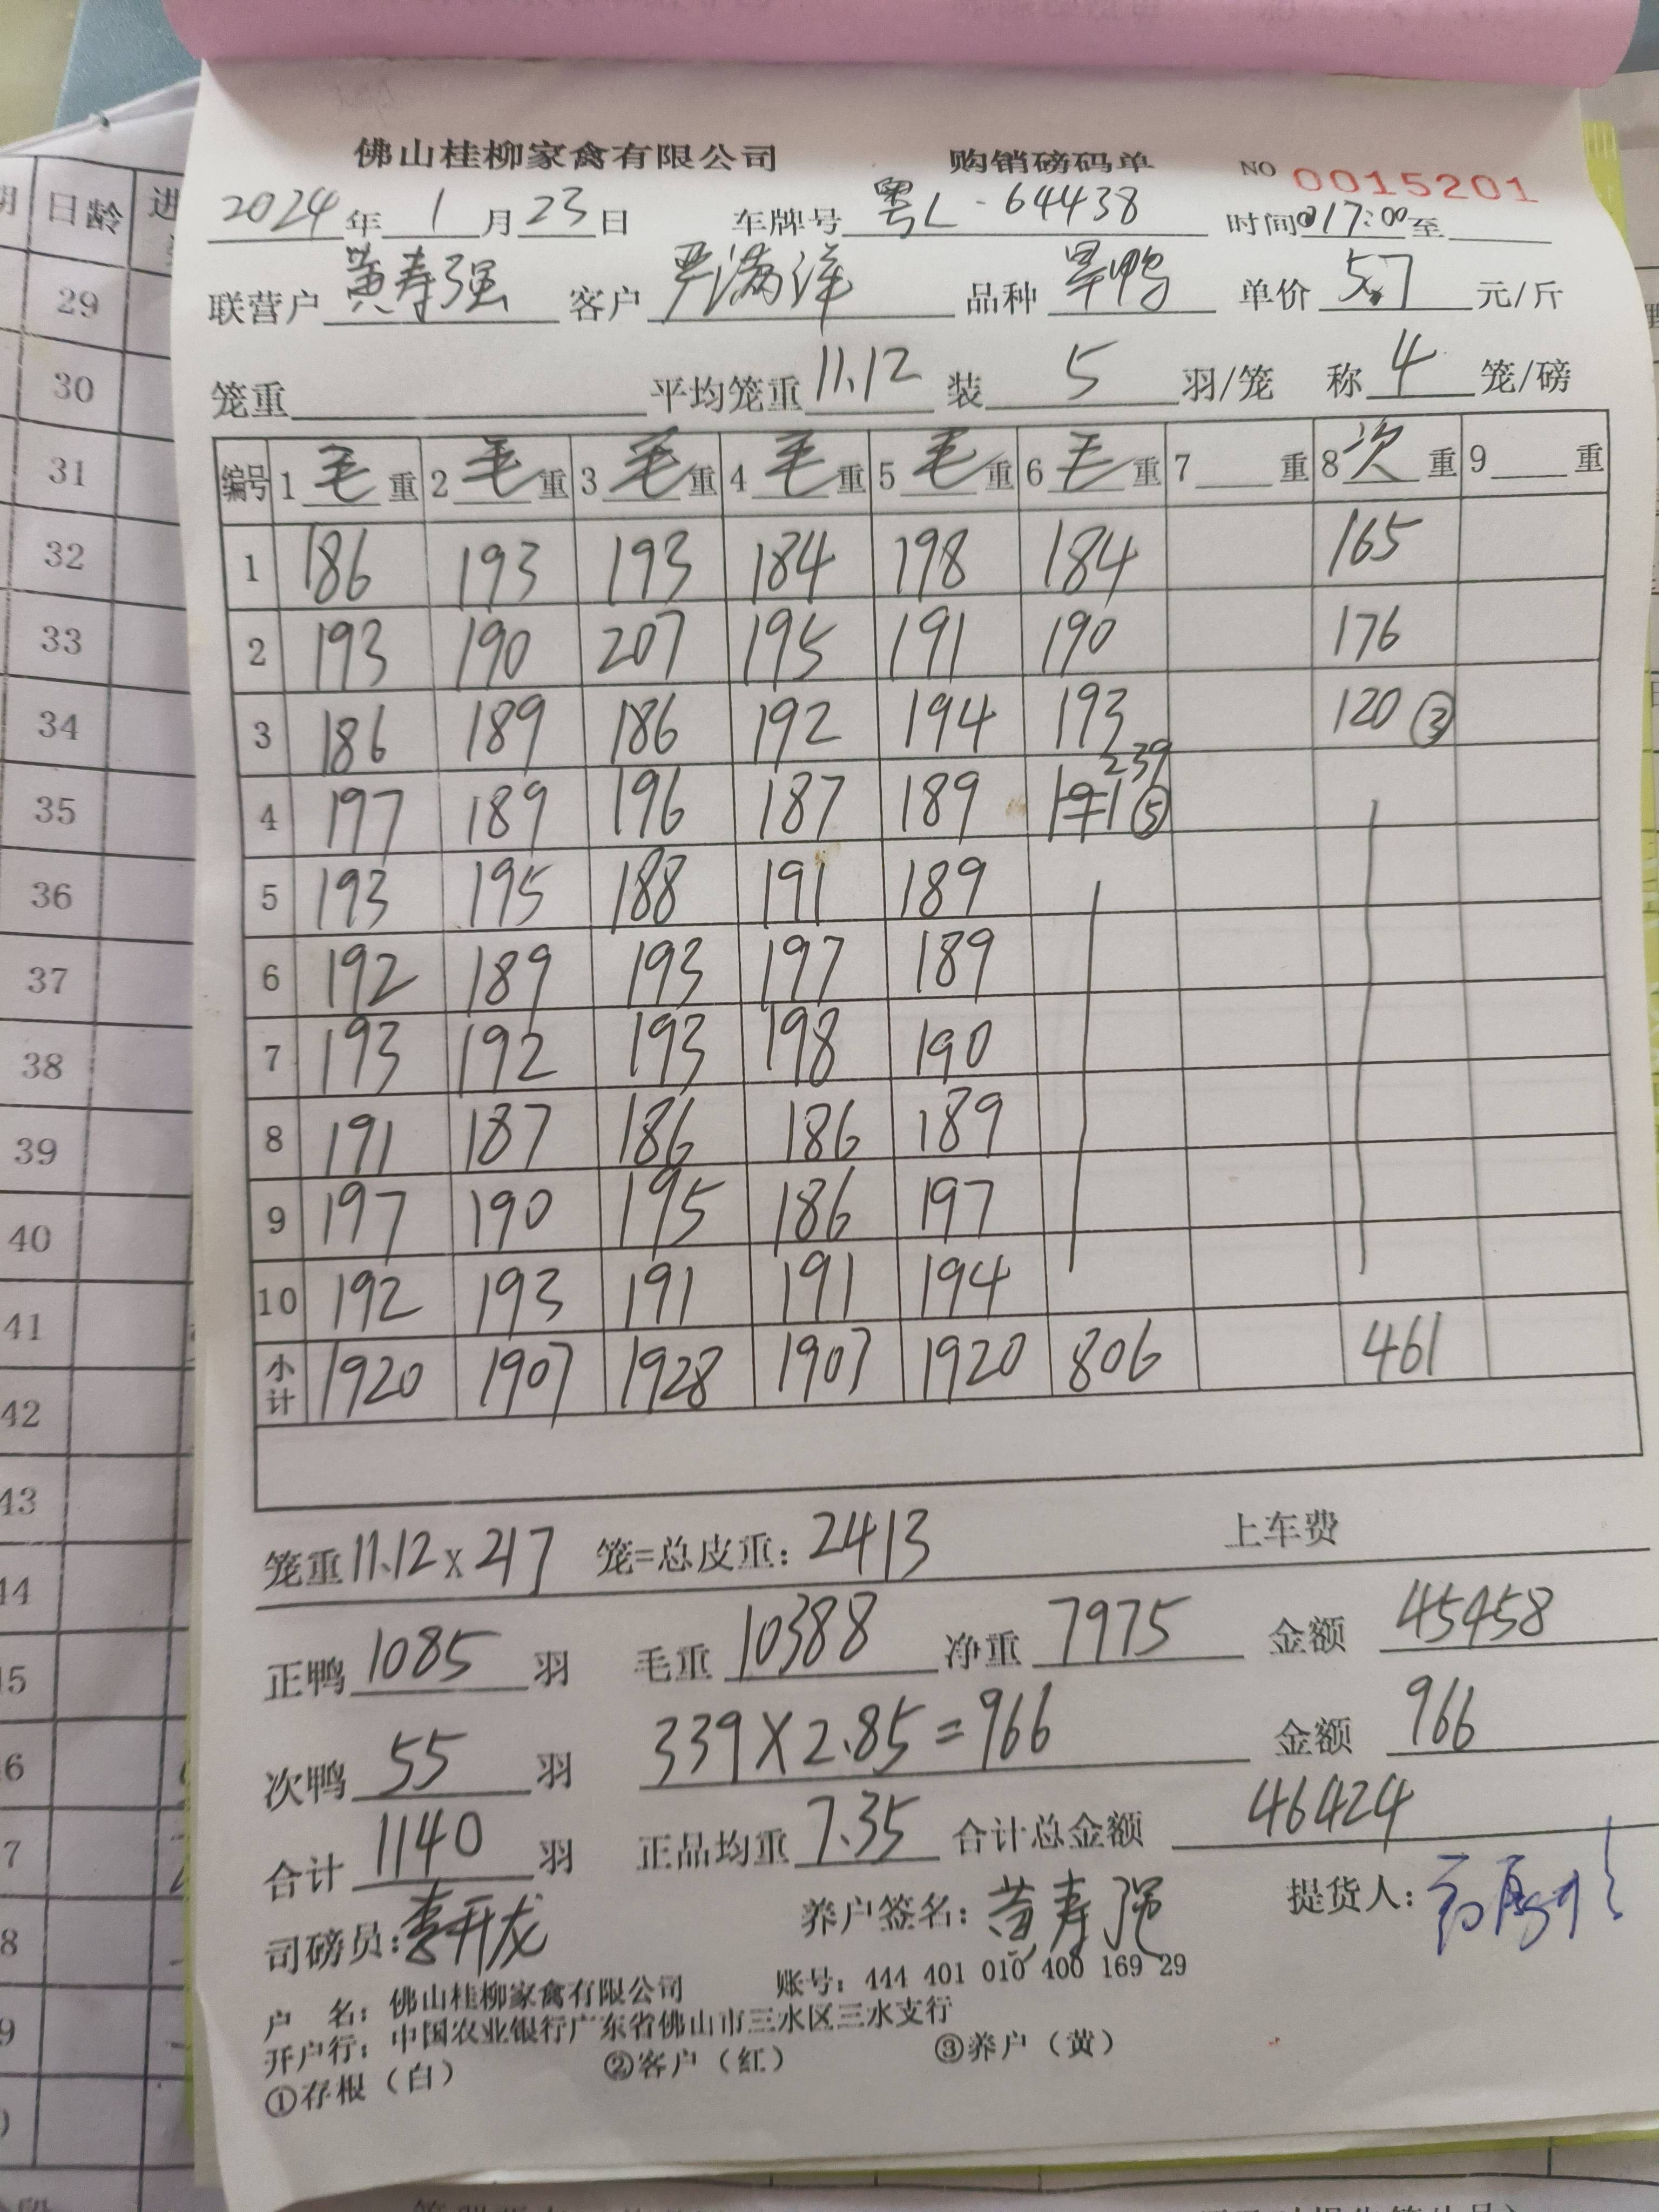 佛山桂柳家禽有限公司 购销磅码单 NO 0015201
2024年 1 月 23 日 车牌号 粤L·64438 时间 17:00 至
联营户 黄寿强 客户 严满洋 品种 旱鸭 单价 5.7 元/斤
笼重 平均笼重 11.12 装 5 羽/笼 称 4 笼/磅
编号 1 毛 重 2 毛 重 3 毛 重 4 毛 重 5 毛 重 6 毛 重 7 重 8 次 重 9 重
1 186 193 193 184 198 184 165
2 193 190 207 195 191 190 176
3 186 189 186 192 194 193 120 ③
239
4 197 189 196 187 189 191 ⑤
5 193 195 188 191 189
6 192 189 193 197 189
7 193 192 193 198 190
8 191 187 186 186 189
9 197 190 195 186 197
10 192 193 191 191 194
小计 1920 1907 1928 1907 1920 806 461
笼重 11.12 x 217 笼=总皮重: 2413 上车费
正鸭 1085 羽 毛重 10388 净重 7975 金额 45458
次鸭 55 羽 339 X 2.85 = 966 金额 966
合计 1140 羽 正品均重 7.35 合计总金额 46424
司磅员: 李开龙 养户签名: 黄寿强 提货人:
户 名: 佛山桂柳家禽有限公司 账号: 444 401 010 400 169 29
开户行: 中国农业银行广东省佛山市三水区三水支行
①存根（白） ②客户（红） ③养户（黄）
日龄 进
29
30
31
32
33
34
35
36
37
38
39
40
41
42
43